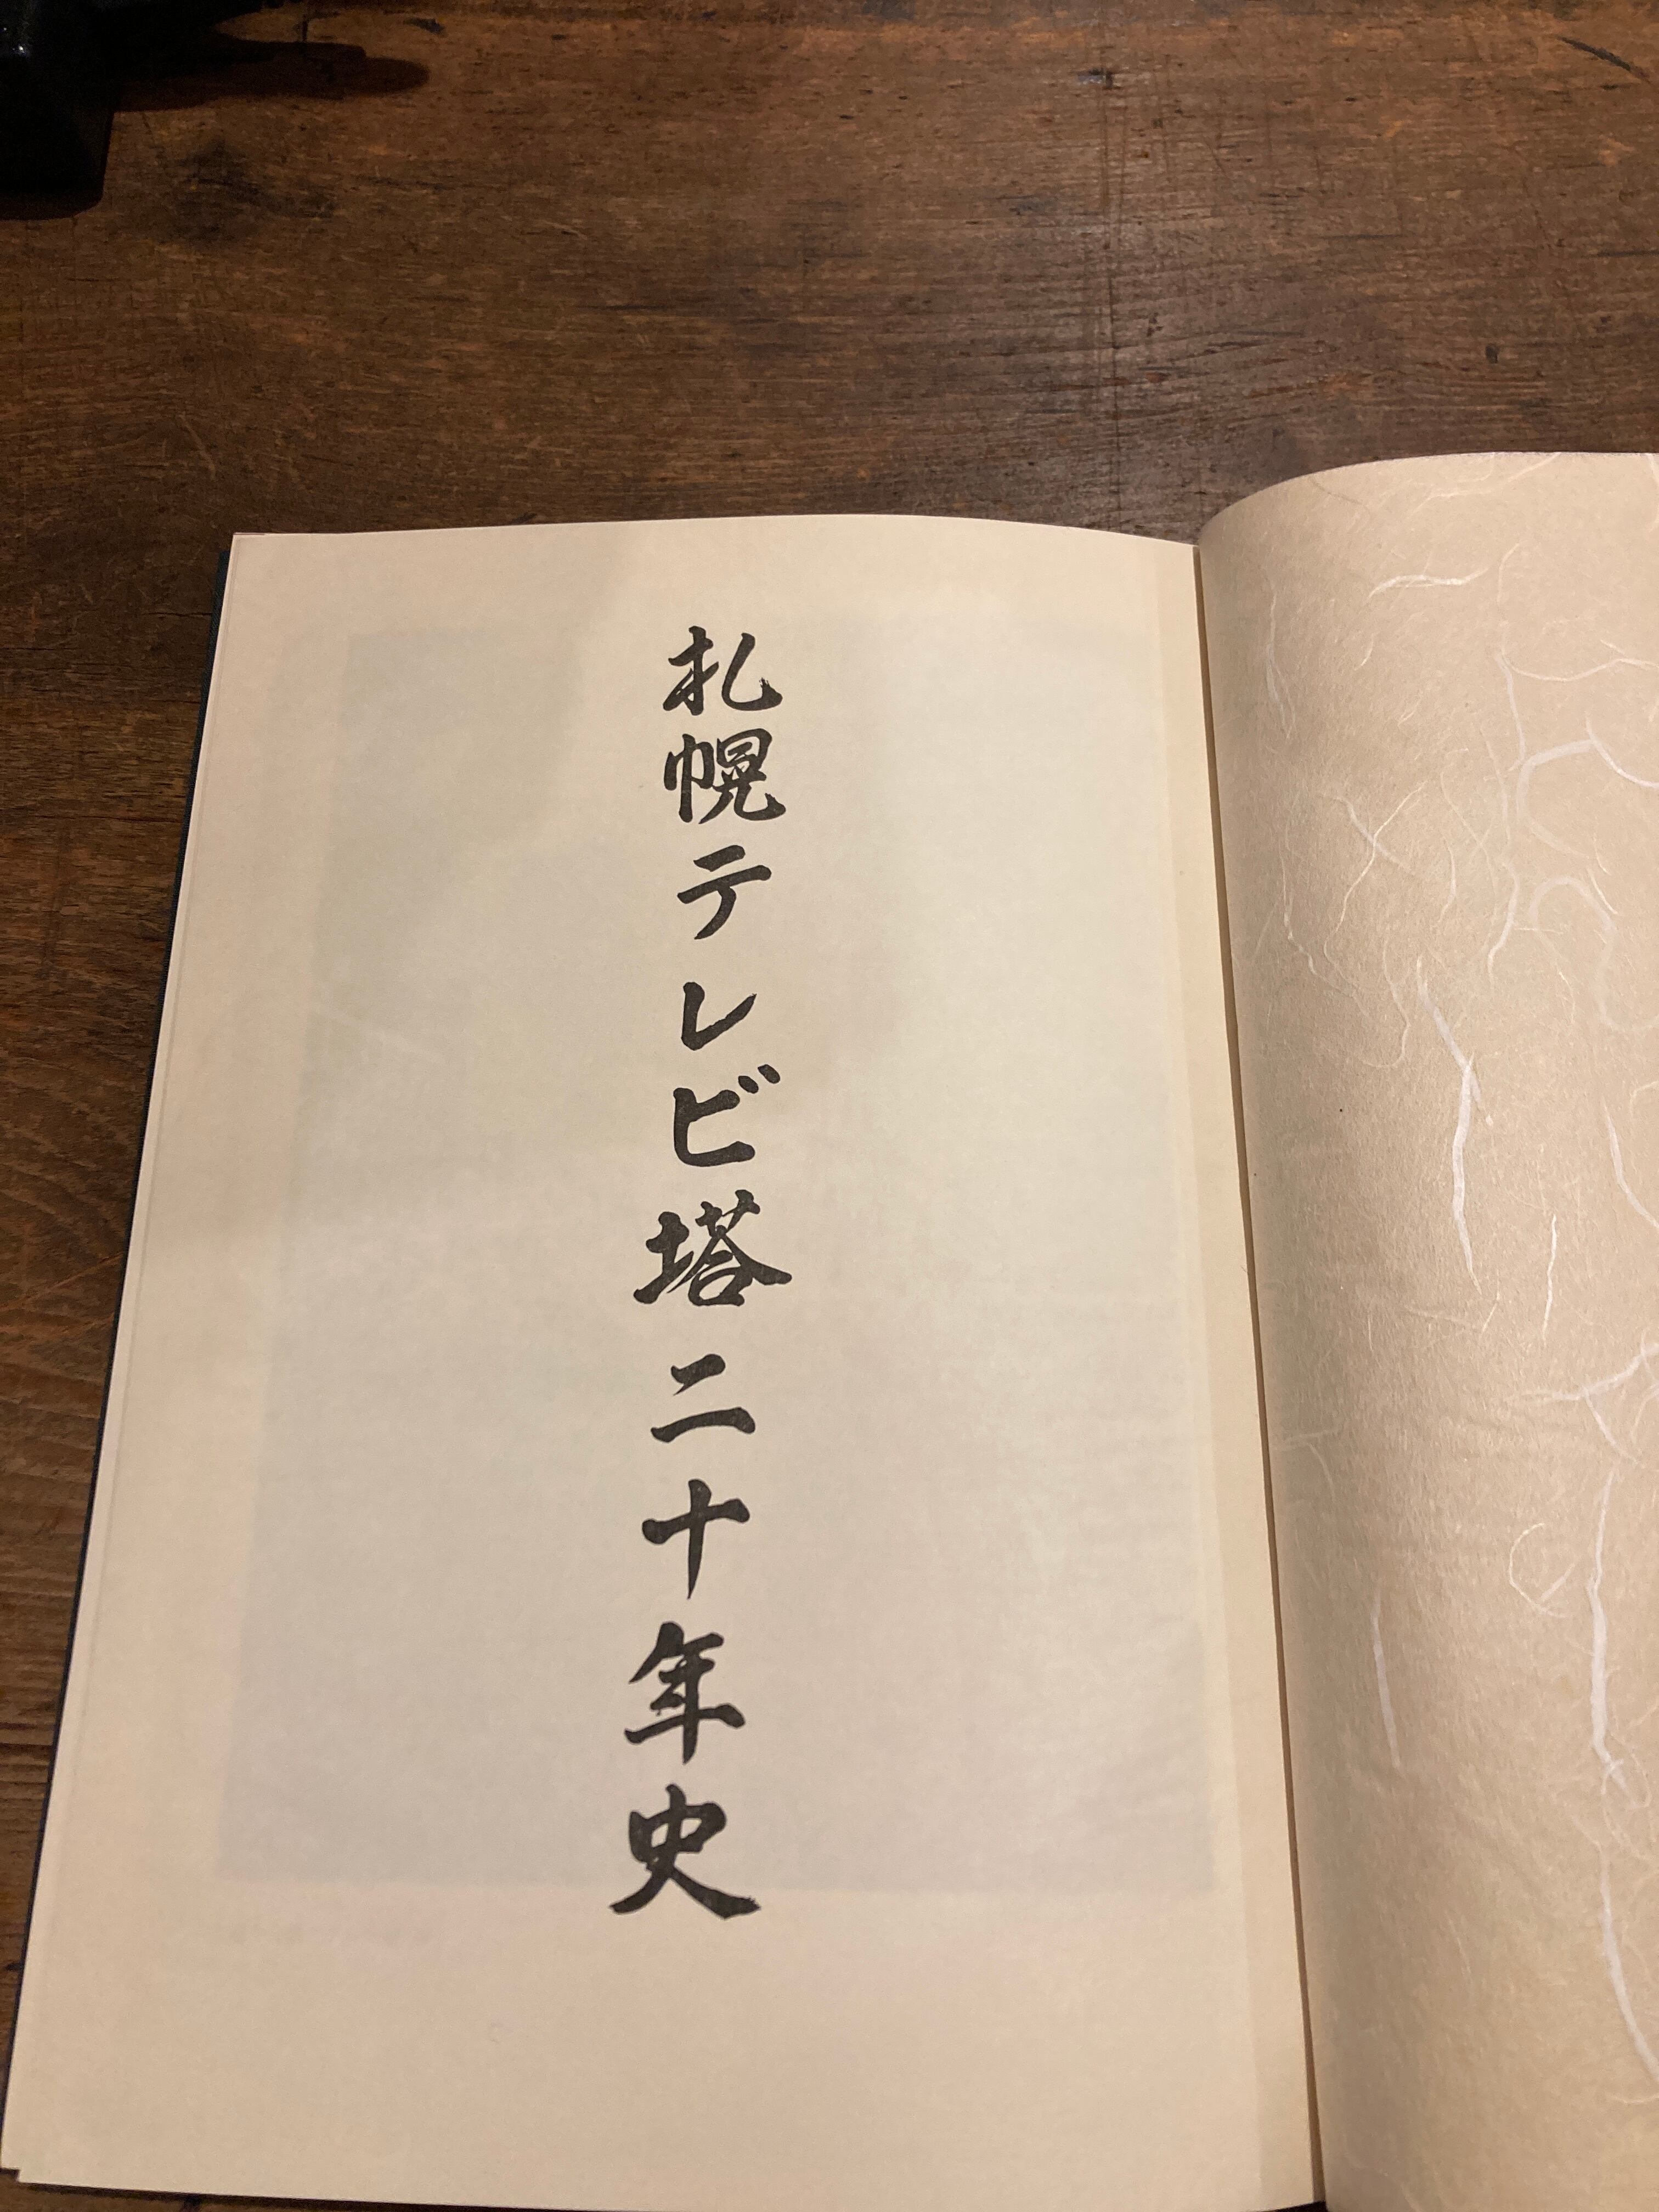 札幌テレビ塔二十年史